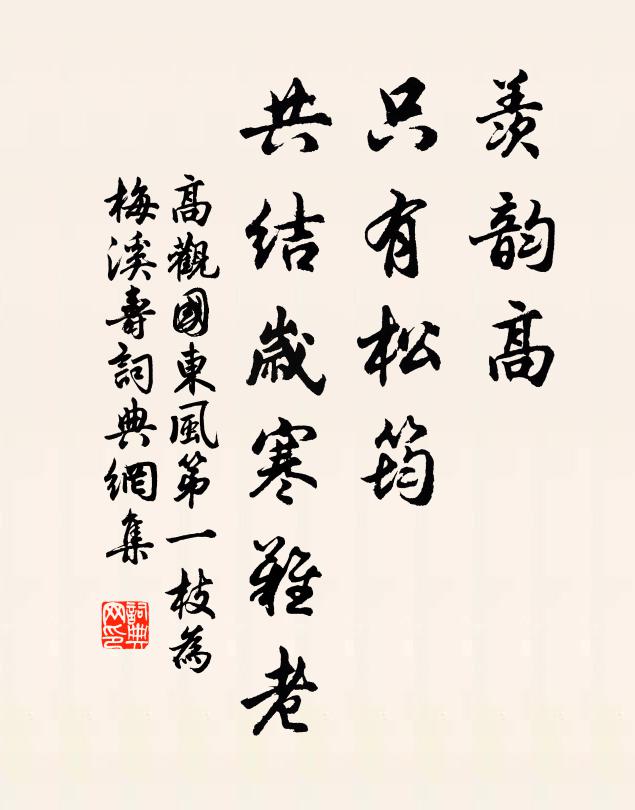 羨韵高
只有松筠
共結歲寒難老
高觀國東風第一枝為
梅溪壽詞典網集
詞典
网印